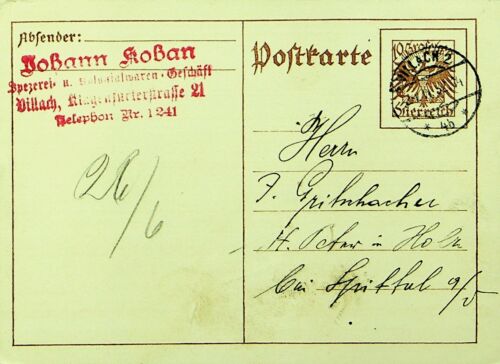 Absender:
Johann Koban
Spezerei- u. Kolonialwaren-Geschäft
Villach, Klagenfurterstrasse 21
Telephon Nr. 1241
26/6
Postkarte
10 Groschen
Österreich
VILLACH 2
* 4b *
Herrn
J. Gritschacher
St. Peter in Holz
bei Spittal a/D